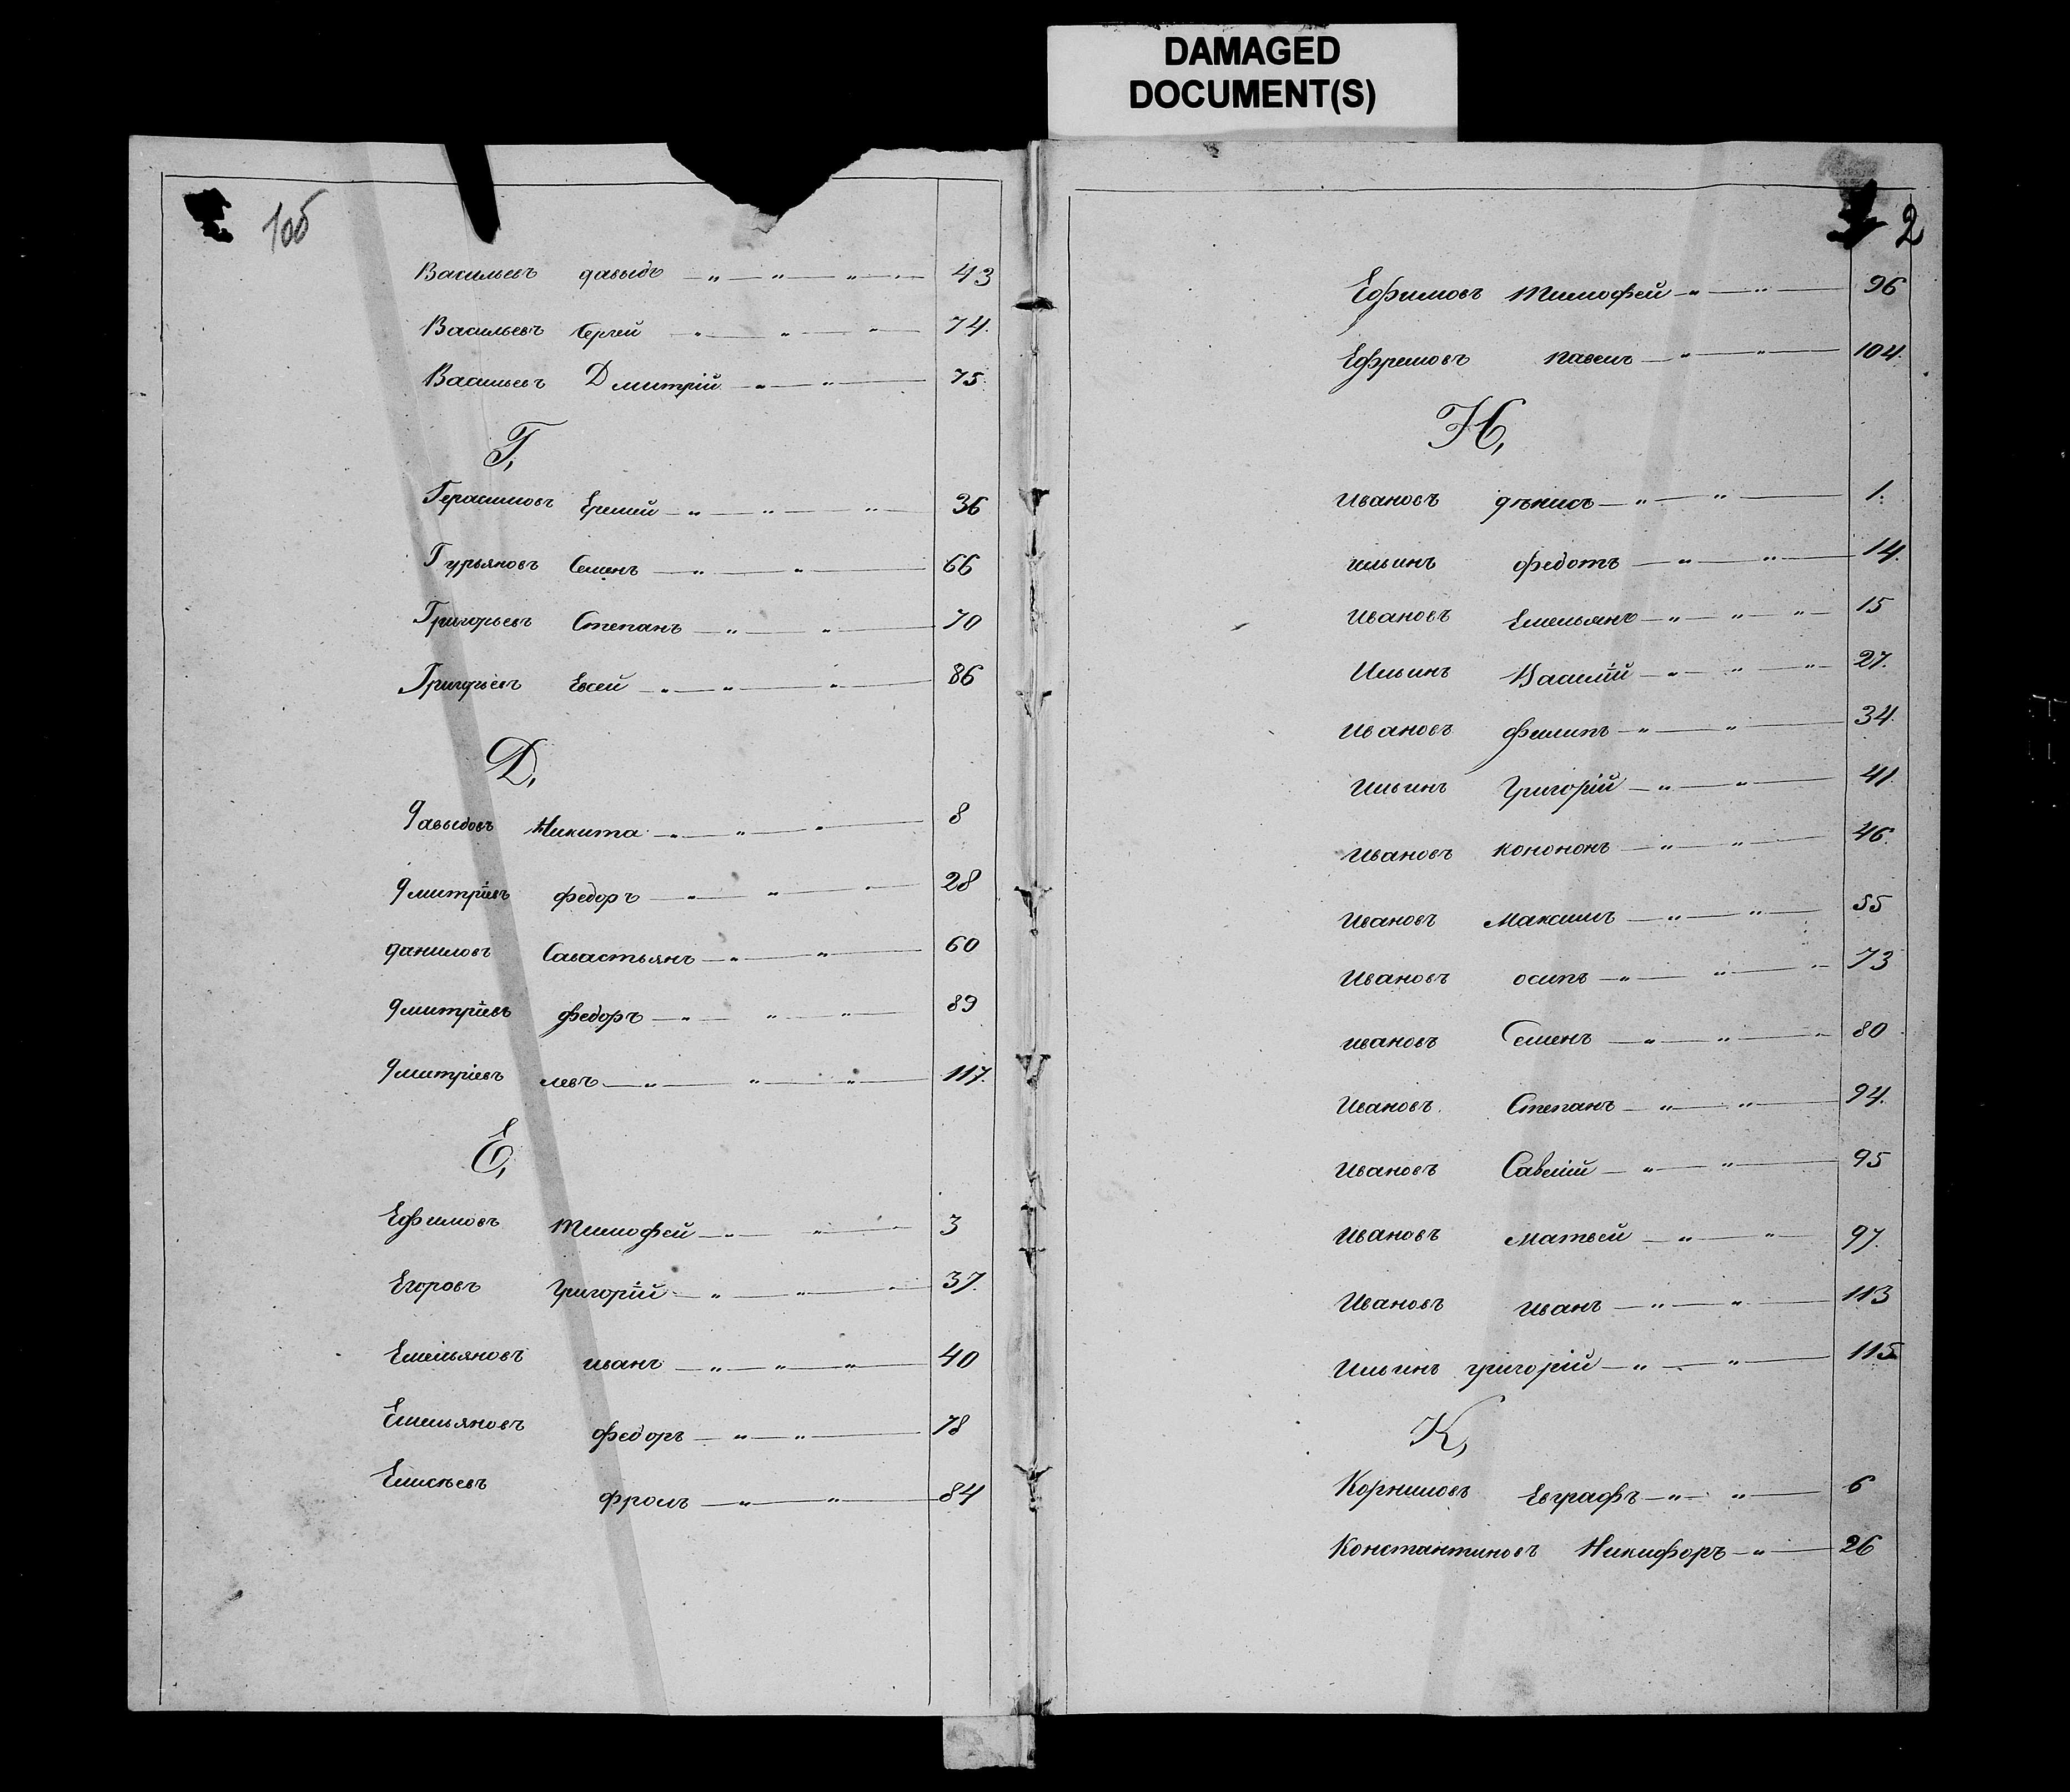 DAMAGED
DOCUMENT(S)
1об
Васильевъ давыдъ — „ — „ — „ — 43
Васильевъ Сергей — „ — „ — „ — 74.
Васильевъ Дмитрій — „ — „ — 75.
Г,
Герасимовъ Еремей — „ — „ — „ — 36
Гурьяновъ Семенъ — „ — „ — 66
Григорьевъ Степанъ — „ — „ — 70
Григорьевъ Евсей — „ — „ — „ — 86
D,
Давыдовъ Никита — „ — „ — „ — 8
Дмитріевъ федоръ — „ — „ — „ — 28
даниловъ Савастьянъ — „ — „ — 60
Дмитріевъ федоръ — „ — „ — „ — 89
Дмитріевъ левъ — „ — „ — „ — 117.
Е,
Ефимовъ Тимофей — „ — „ — „ — 3
Егоровъ Григорій — „ — „ — „ — 37.
Емельяновъ иванъ — „ — „ — „ — 40
Емельяновъ федоръ — „ — „ — 78
Елисѣевъ фролъ — „ — „ — 84
2
Ефимовъ Тимофей — „ — „ — 96
Ефремовъ павелъ — „ — „ — 104.
И,
Ивановъ дѣнисъ — „ — „ — 1.
ильинъ федотъ — „ — „ — 14.
Ивановъ Емельянъ — „ — „ — „ — 15
Ильинъ Василій — „ — „ — „ — 27.
Ивановъ филипъ — „ — „ — 34.
Ильинъ Григорій — „ — „ — 41.
Ивановъ кононъ — „ — „ — 46.
Ивановъ Максимъ — „ — „ — 55
Ивановъ осипъ — „ — „ — „ — 73
ивановъ Семенъ — „ — „ — „ — 80
Ивановъ. Степанъ — „ — „ — 94.
Ивановъ Савелій — „ — „ — 95
Ивановъ матвей — „ — „ — 97.
Ивановъ иванъ — „ — „ — 113
Ильинъ григорій — „ — „ — 115.
К,
Корниловъ Евграфъ — „ — „ — 6
Константиновъ Никифоръ — „ — 26